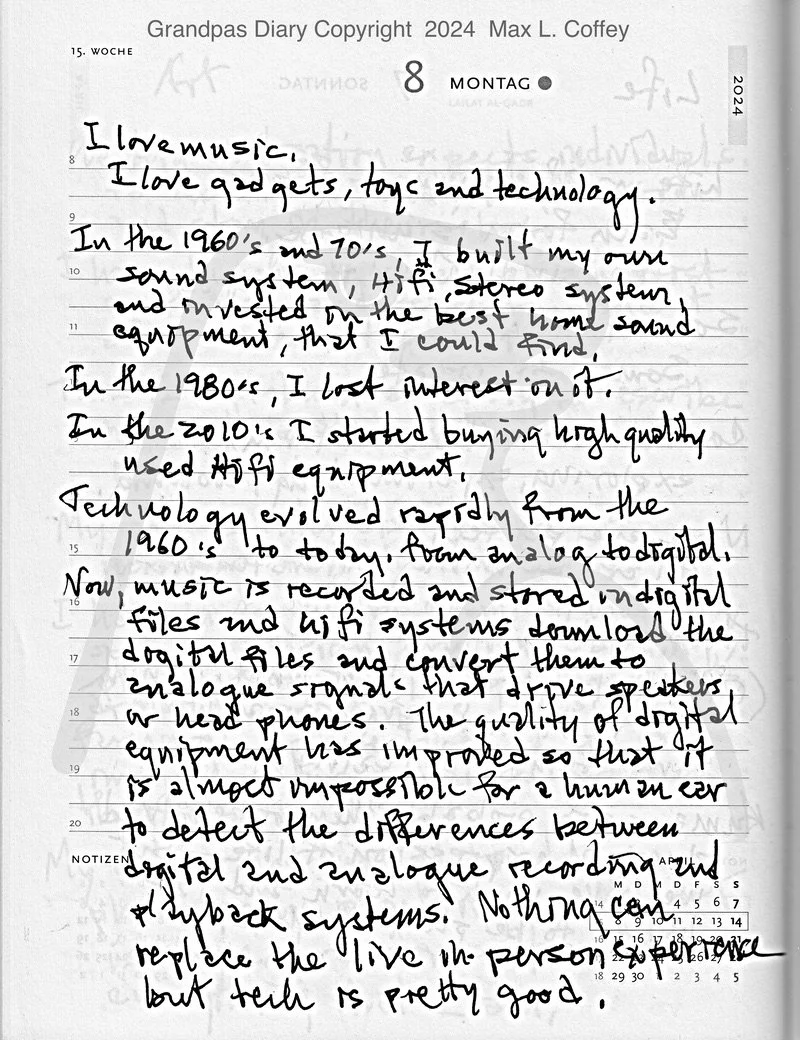 Grandpas Diary Copyright 2024 Max L. Coffey
15. WOCHE
8 MONTAG
2024
I love music.
8
I love gadgets, toys and technology.
9
In the 1960's and 70's, I built my own
10
sound system, Hifi, stereo system,
and invested in the best home sound
11
equipment, that I could find.
In the 1980's, I lost interest in it.
In the 2010's I started buying high quality
used Hifi equipment.
Technology evolved rapidly from the
15
1960's to today, from analog to digital.
Now, music is recorded and stored in digital
16
files and hifi systems download the
17
digital files and convert them to
analogue signals that drive speakers
18
or head phones. The quality of digital
equipment has improved so that it
19
is almost impossible for a human ear
20
to detect the differences between
NOTIZEN
APRIL
digital and analogue recording and
M D M D F S S
playback systems. Nothing can
14 5 6 7
8 9 10 11 12 13 14
replace the live in-person experience
18 29 30 1 2 3 4 5
but tech is pretty good.